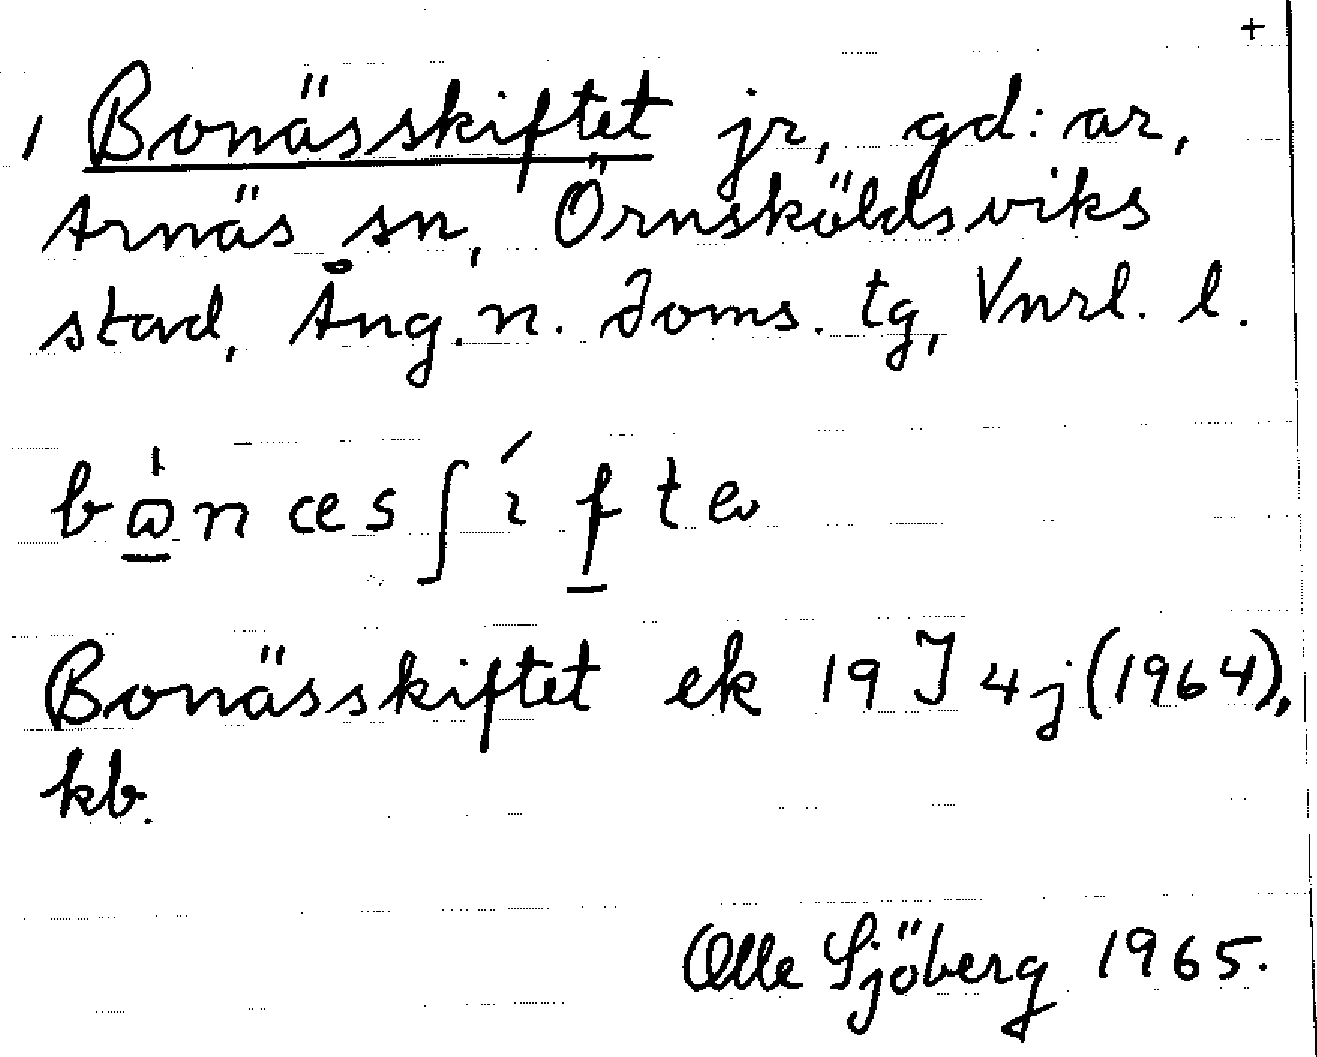 +
1 Bonässkiftet jr, gd:ar,
Arnäs sn, Örnsköldsviks
stad, Ång. n. doms. tg, Vnrl. l.
Bonässkiftet ek 19 J 4 j (1964),
kb.
Olle Sjöberg 1965.